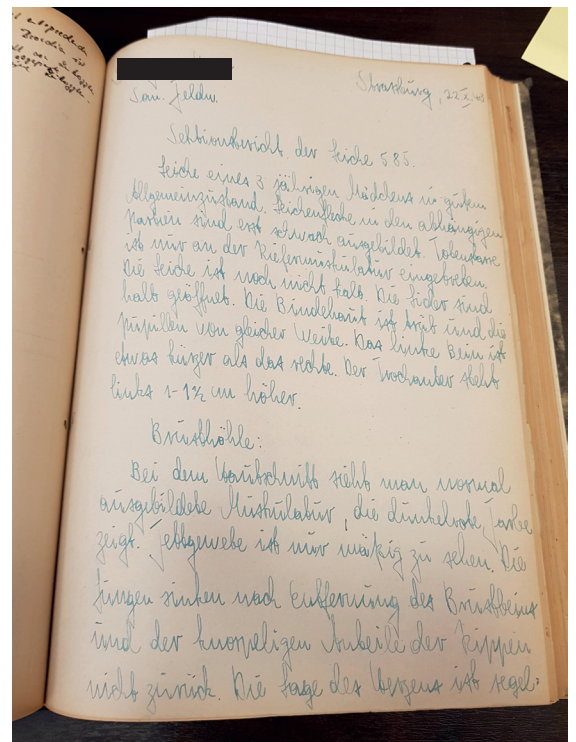 San. Feldw.
Strassburg, 22.
Sektionsbericht der Leiche 585.
Leiche eines 3 jährigen Mädchens in gutem
Allgemeinzustand. Leichenflecke in den abhängigen
partien sind erst schwach ausgebildet. Totenstarre
ist nur an der Kiefermuskulatur eingetreten.
Die Leiche ist noch nicht kalt. Die Lider sind
halb geöffnet. Die Bindehaut ist trüb und die
pupillen von gleicher Weite. Das linke Bein ist
etwas kürzer als das rechte. Der Trochanter steht
links 1-1½ cm höher.
Brusthöhle:
Bei dem Hautschnitt sieht man normal
ausgebildete Muskulatur, die dunkelrote Farbe
zeigt. Fettgewebe ist nur mäßig zu sehen. Die
Lungen sinken nach Entfernung des Brustbeins
und der knorpeligen Anteile der Rippen
nicht zurück. Die Lage des Herzens ist regel-